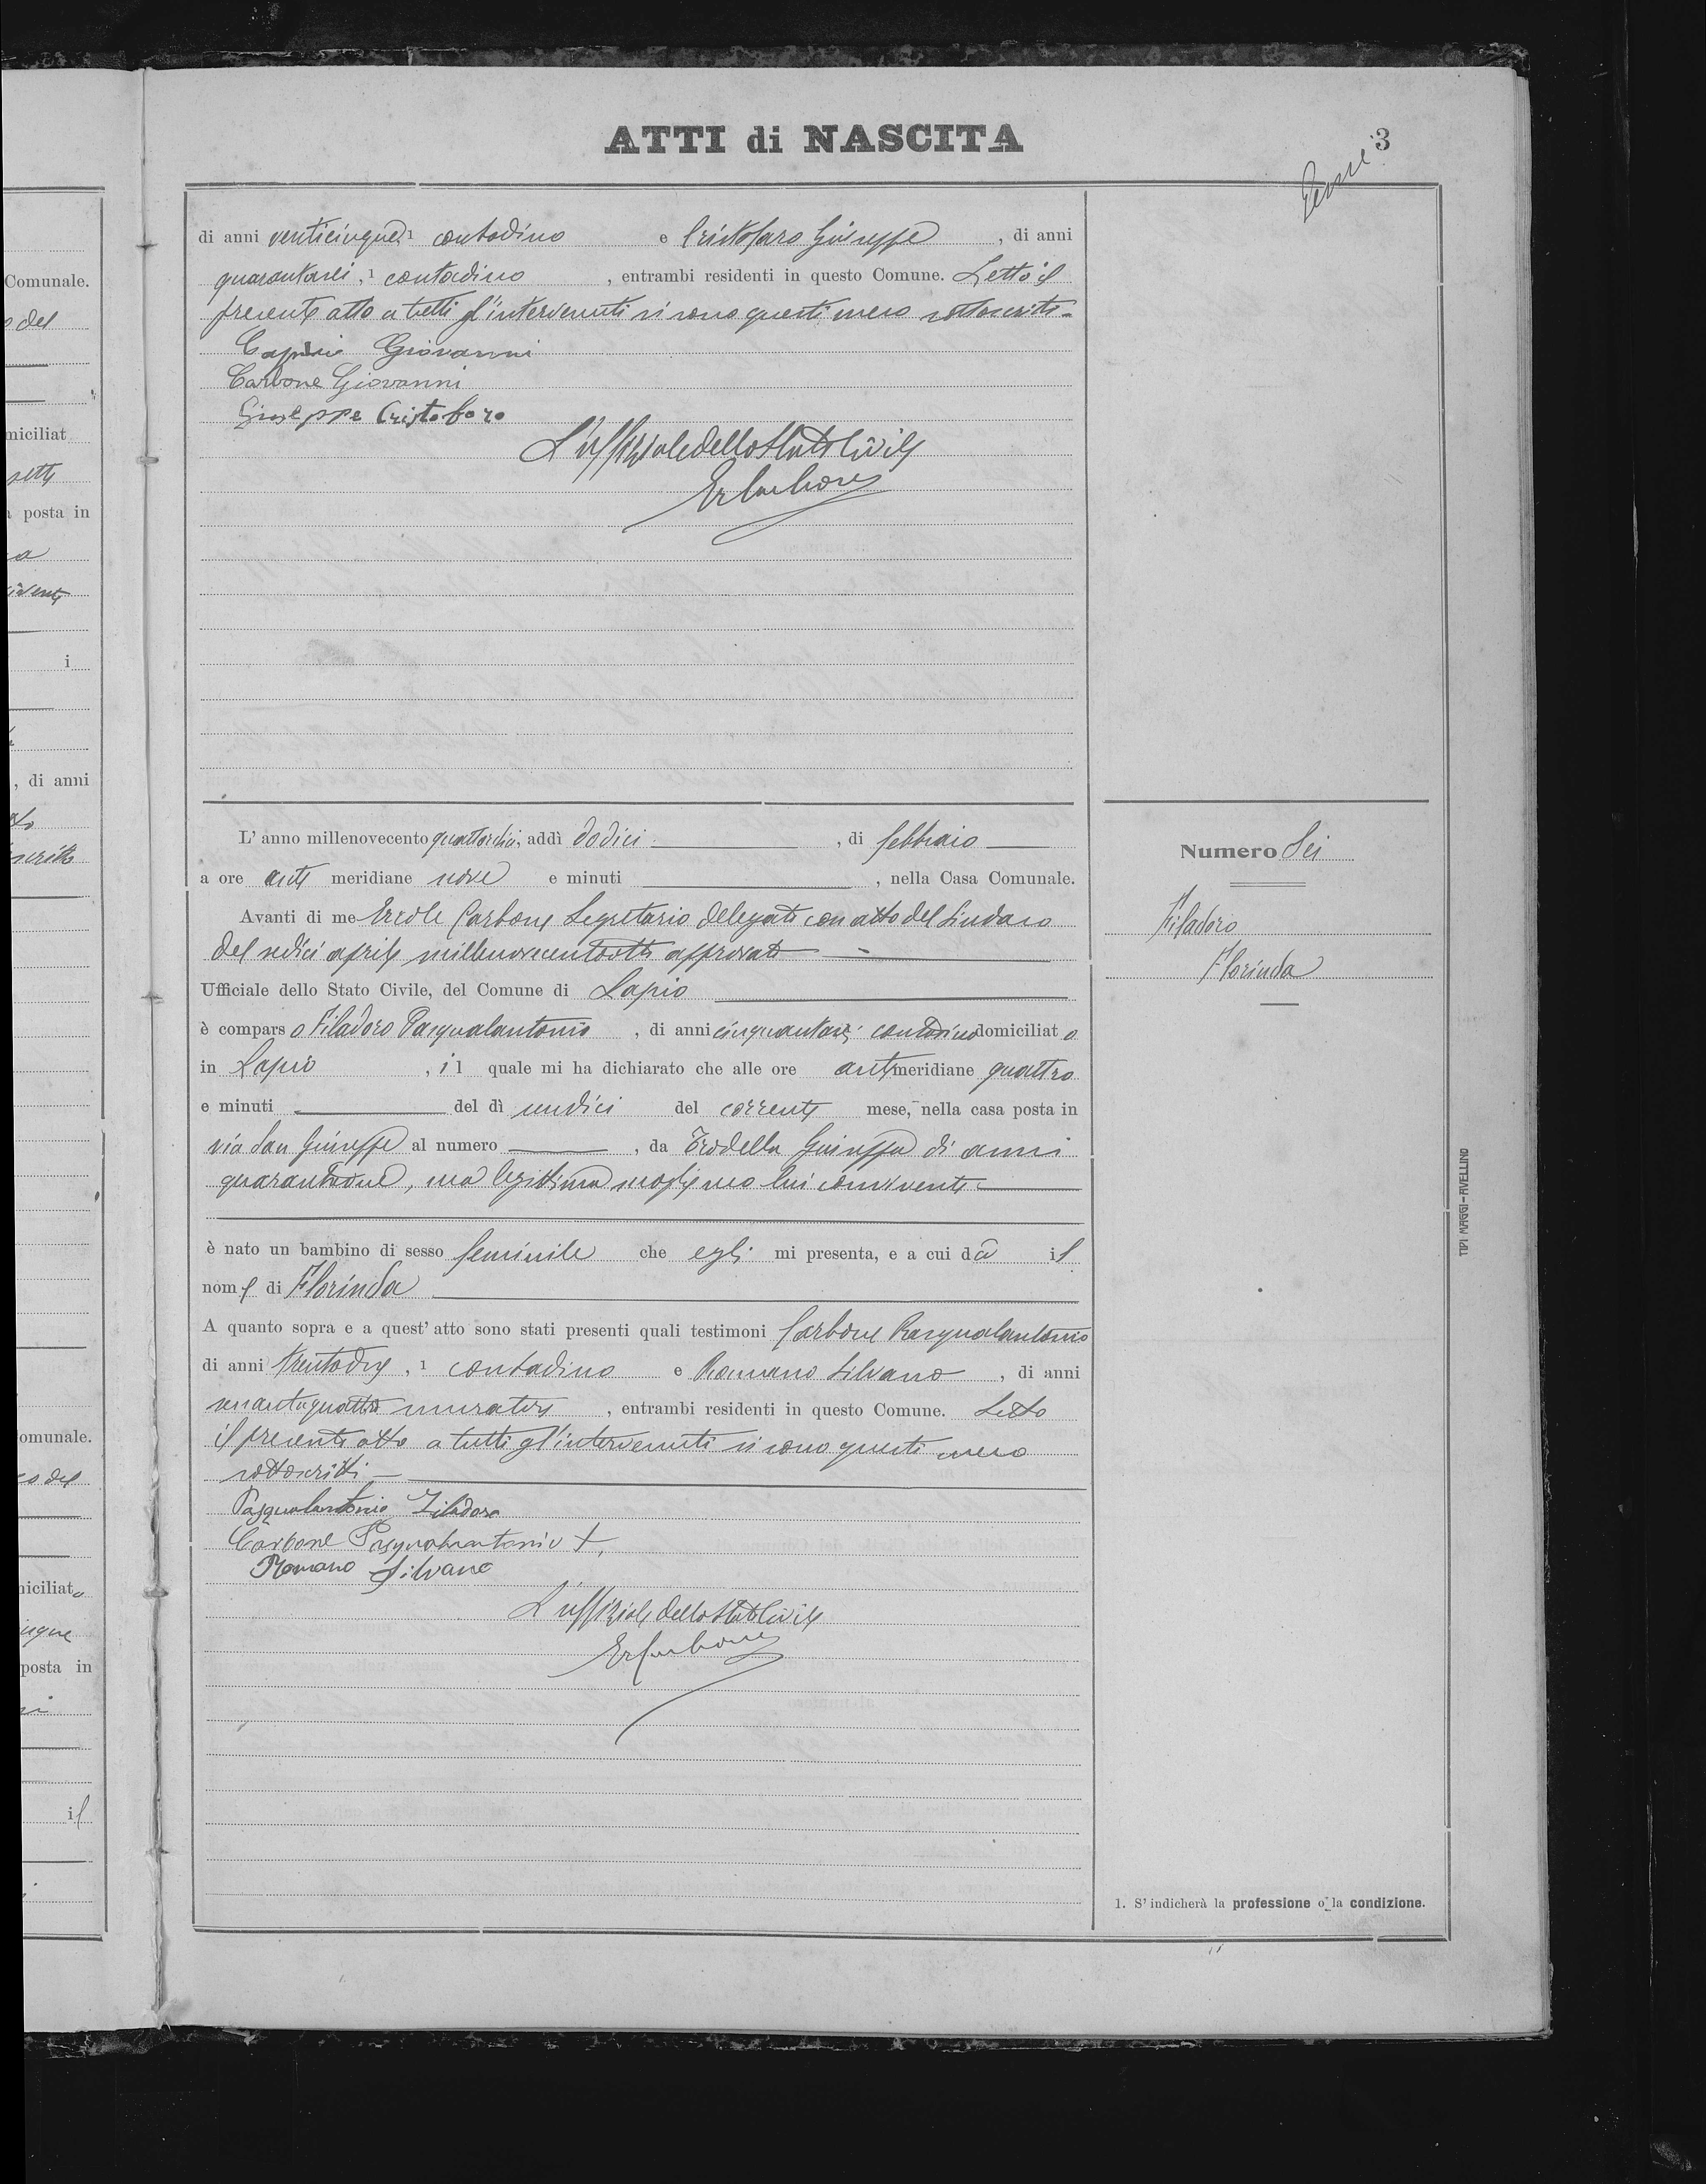 ATTI di NASCITA
3
di anni venticinque, 1 contadino e Cristofaro Giuseppe, di anni
quarantasei, 1 contadino, entrambi residenti in questo Comune. Letto il
presente atto a tutti gl'intervenuti si sono questi meco sottoscritti.
Giovanni
Carbone Giovanni
Giuseppe Cristoforo
L'uffiziale dello Stato Civile
ErCarbone
L'anno millenovecento quattordici, addì dodici, di febbraio
a ore anti meridiane nove e minuti, nella Casa Comunale.
Avanti di me Ercole Carbone Segretario delegato con atto del Sindaco
del sedici aprile millenovecentootto approvato
Ufficiale dello Stato Civile, del Comune di Lapio
è comparso Filadoro Pasqualantonio, di anni contadino domiciliato
in Lapio, il quale mi ha dichiarato che alle ore antimeridiane quattro
e minuti del dì undici del corrente mese, nella casa posta in
via San Giuseppe al numero, da Trodella Giuseppa di anni
quarantadue, sua legittima moglie seco lui convivente
è nato un bambino di sesso feminile che egli mi presenta, e a cui dà il
nome di Florinda
A quanto sopra e a quest'atto sono stati presenti quali testimoni Carbone Pasqualantonio
di anni trentadue, 1 contadino e Romano Silvano, di anni
muratore, entrambi residenti in questo Comune. Letto
il presente atto a tutti gl'intervenuti si sono questi meco
sottoscritti
Pasqualantonio Filadoro
Carbone Pasqualantonio +
Romano Silvano
L'uffiziale dello Stato Civile
ErCarbone
Numero Sei
Filadoro
Florinda
1. S'indicherà la professione o la condizione.
TIPI MAGGI-AVELLINO
Comunale.
o del
miciliat
sette
a posta in
a
i
, di anni
omunale.
co del
niciliato
posta in
il